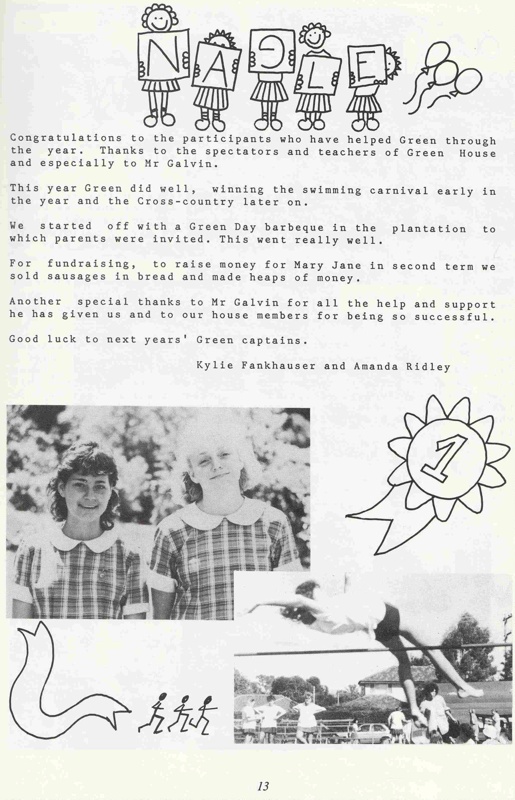 NAGLE
Congratulations to the participants who have helped Green through
the year. Thanks to the spectators and teachers of Green House
and especially to Mr Galvin.
This year Green did well, winning the swimming carnival early in
the year and the Cross-country later on.
We started off with a Green Day barbeque in the plantation to
which parents were invited. This went really well.
For fundraising, to raise money for Mary Jane in second term we
sold sausages in bread and made heaps of money.
Another special thanks to Mr Galvin for all the help and support
he has given us and to our house members for being so successful.
Good luck to next years' Green captains.
Kylie Fankhauser and Amanda Ridley
1
13